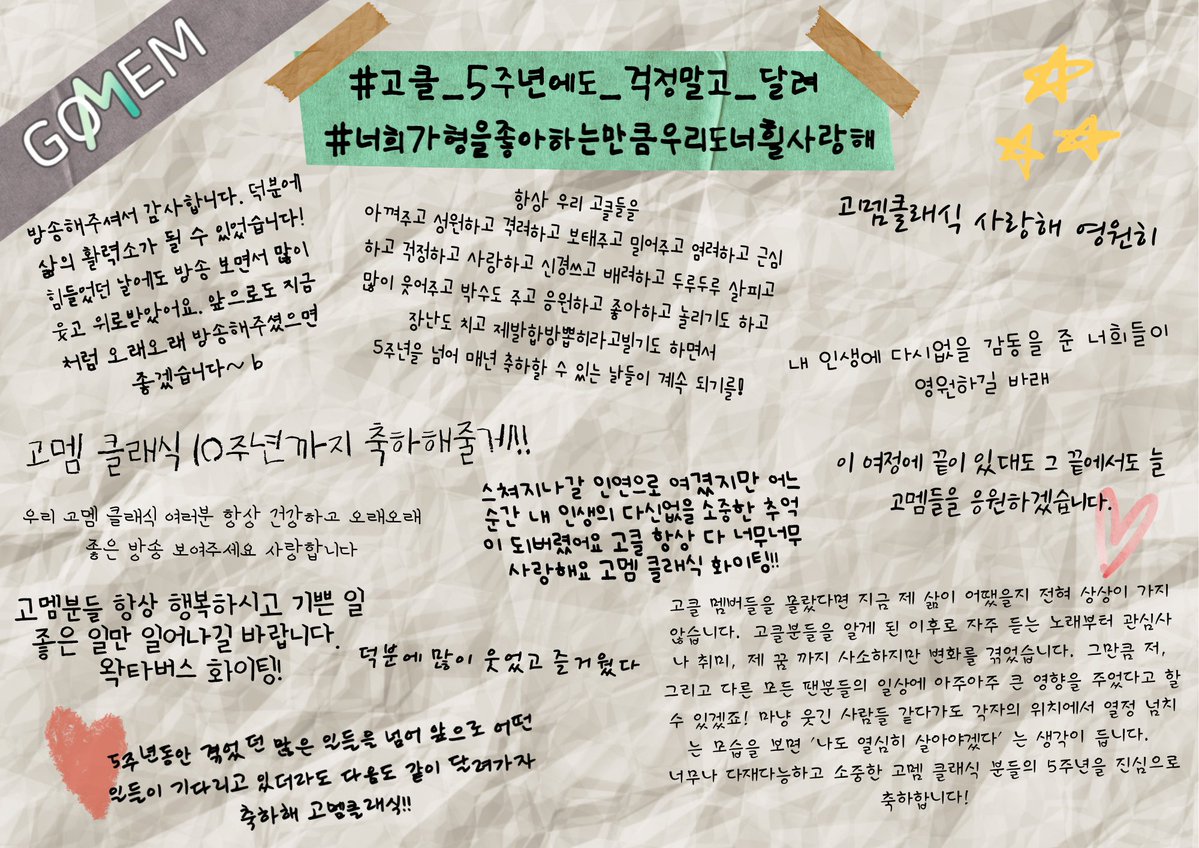 GOMEM
#고클_5주년에도_걱정말고_달려
#너희가형을좋아하는만큼우리도너흴사랑해
방송해주셔서 감사합니다. 덕분에
삶의 활력소가 될 수 있었습니다!
힘들었던 날에도 방송 보면서 많이
웃고 위로받았어요. 앞으로도 지금
처럼 오래오래 방송해주셨으면
좋겠습니다~ b
항상 우리 고클들을
아껴주고 성원하고 격려하고 보태주고 밀어주고 염려하고 근심
하고 걱정하고 사랑하고 신경쓰고 배려하고 두루두루 살피고
많이 웃어주고 박수도 주고 응원하고 좋아하고 놀리기도 하고
장난도 치고 제발합방뽑히라고빌기도 하면서
5주년을 넘어 매년 축하할 수 있는 날들이 계속 되기를!
고멤클래식 사랑해 영원히
내 인생에 다시없을 감동을 준 너희들이
영원하길 바래
고멤 클래식 10주년까지 축하해줄게!!
우리 고멤 클래식 여러분 항상 건강하고 오래오래
좋은 방송 보여주세요 사랑합니다
스쳐지나갈 인연으로 여겼지만 어느
순간 내 인생의 다신없을 소중한 추억
이 되버렸어요 고클 항상 다 너무너무
사랑해요 고멤 클래식 화이팅!!
이 여정에 끝이 있대도 그 끝에서도 늘
고멤들을 응원하겠습니다.
고멤분들 항상 행복하시고 기쁜 일
좋은 일만 일어나길 바랍니다.
왁타버스 화이팅!
덕분에 많이 웃었고 즐거웠다
고클 멤버들을 몰랐다면 지금 제 삶이 어땠을지 전혀 상상이 가지
않습니다. 고클분들을 알게 된 이후로 자주 듣는 노래부터 관심사
나 취미, 제 꿈 까지 사소하지만 변화를 겪었습니다. 그만큼 저,
그리고 다른 모든 팬분들의 일상에 아주아주 큰 영향을 주었다고 할
수 있겠죠! 마냥 웃긴 사람들 같다가도 각자의 위치에서 열정 넘치
는 모습을 보면 '나도 열심히 살아야겠다' 는 생각이 듭니다.
너무나 다재다능하고 소중한 고멤 클래식 분들의 5주년을 진심으로
축하합니다!
5주년동안 겪었 던 많은 일들을 넘어 앞으로 어떤
일들이 기다리고 있더라도 다음도 같이 달려가자
축하해 고멤클래식!!